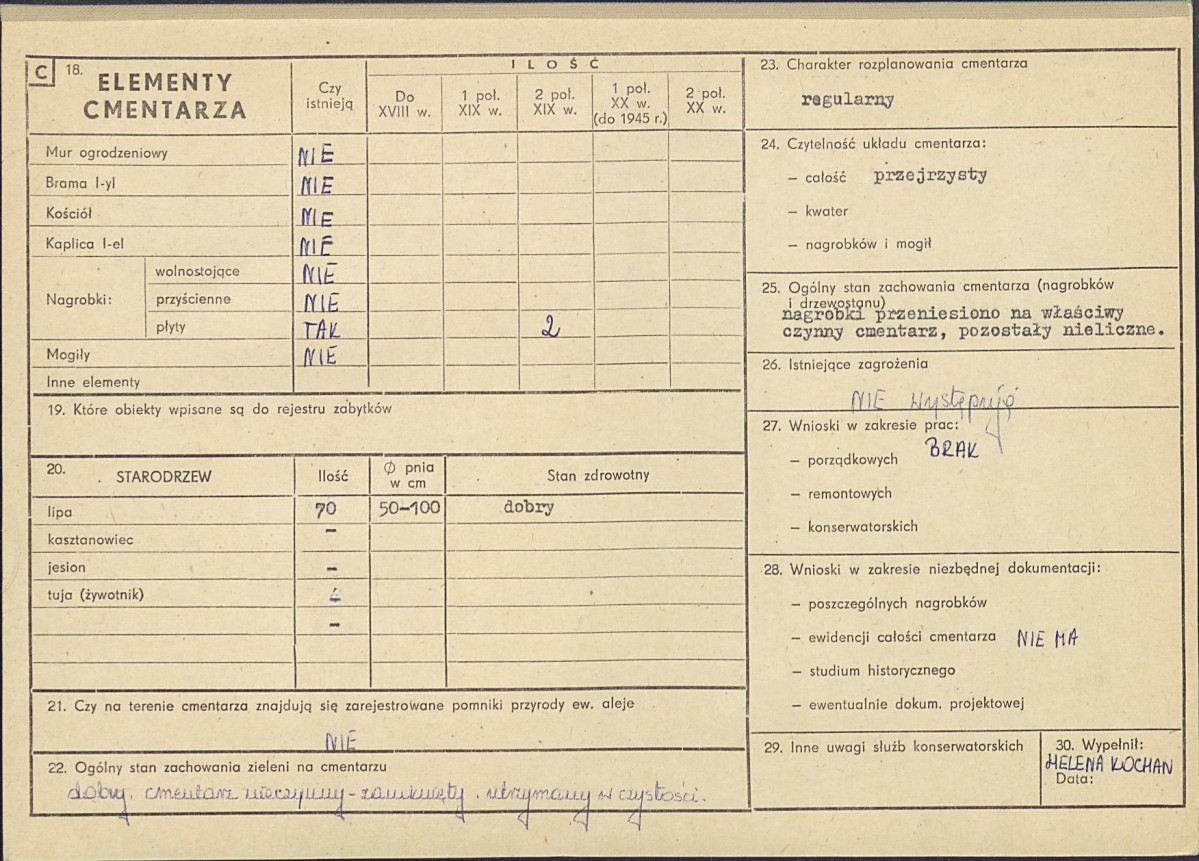 C 18. ELEMENTY
CMENTARZA
Czy
istnieją
ILOŚĆ
Do
XVIII w.
1 poł.
XIX w.
2 poł.
XIX w.
1 poł.
XX w.
(do 1945 r.)
2 poł.
XX w.
Mur ogrodzeniowy NIE
Brama I-yl NIE
Kościół NIE
Kaplica I-el NIE
Nagrobki:
wolnostojące NIE
przyścienne NIE
płyty TAK 2
Mogiły NIE
Inne elementy
19. Które obiekty wpisane są do rejestru zabytków
20. STARODRZEW
Ilość
Ø pnia
w cm
Stan zdrowotny
lipa 70 50-100 dobry
kasztanowiec -
jesion -
tuja (żywotnik)
-
21. Czy na terenie cmentarza znajdują się zarejestrowane pomniki przyrody ew. aleje
NIE
22. Ogólny stan zachowania zieleni na cmentarzu
dobry. cmentarz nieczynny - zamknięty. utrzymany w czystości.
23. Charakter rozplanowania cmentarza
regularny
24. Czytelność układu cmentarza:
– całość przejrzysty
– kwater
– nagrobków i mogił
25. Ogólny stan zachowania cmentarza (nagrobków
i drzewostanu)
nagrobki przeniesiono na właściwy
czynny cmentarz, pozostały nieliczne.
26. Istniejące zagrożenia
NIE występują
27. Wnioski w zakresie prac:
BRAK
– porządkowych
– remontowych
– konserwatorskich
28. Wnioski w zakresie niezbędnej dokumentacji:
– poszczególnych nagrobków
– ewidencji całości cmentarza NIE MA
– studium historycznego
– ewentualnie dokum. projektowej
29. Inne uwagi służb konserwatorskich
30. Wypełnił:
HELENA KOCHAN
Data: